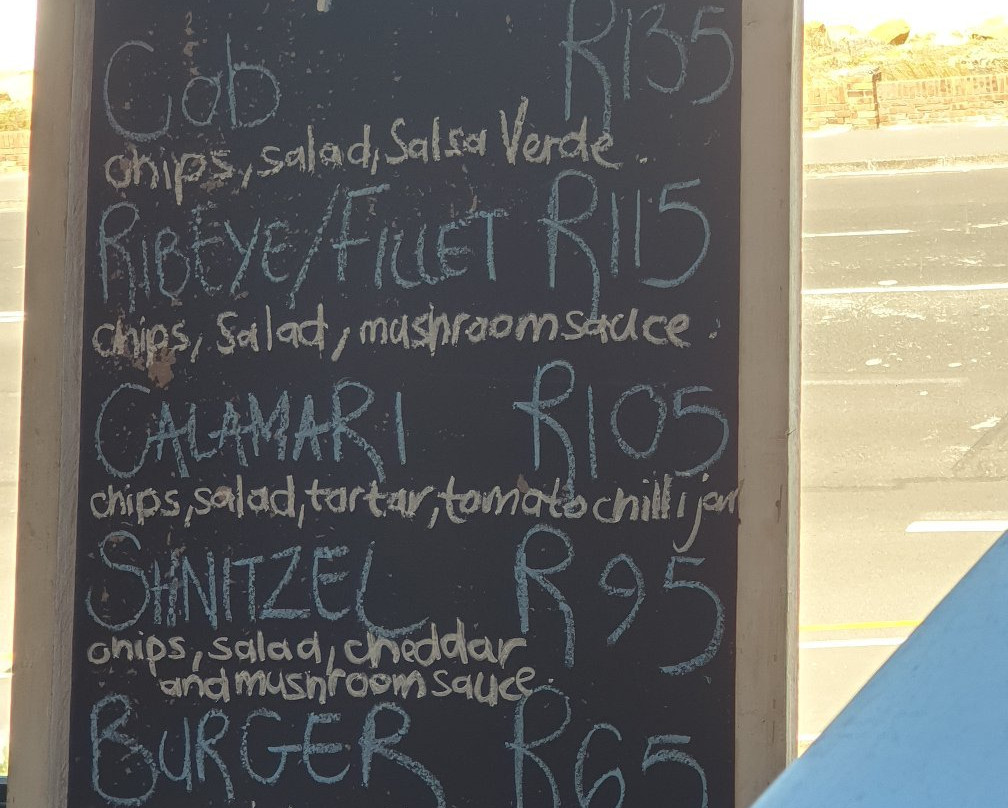 Cob R135
chips, salad, Salsa Verde.
RIBEYE/FILLET R115
chips, salad, mushroom sauce.
CALAMARI R105
chips, salad, tartar, tomato chilli jam
SHNITZEL R95
chips, salad, cheddar
and mushroom sauce.
BURGER R65